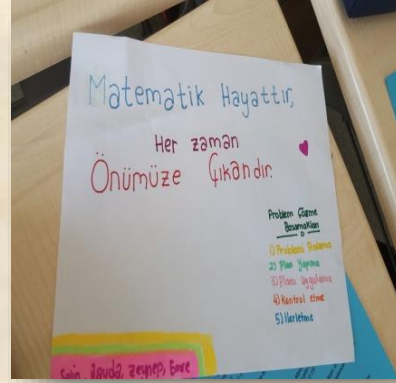 Matematik Hayattır,
Her zaman
Önümüze Çıkandır.
Problem Çözme
Basamakları
1) Problemi Anlama
2) Plan Yapma
3) Planı Uygulama
4) Kontrol etme
5) İlerletme
Selin, Sevda, Zeynep, Emre